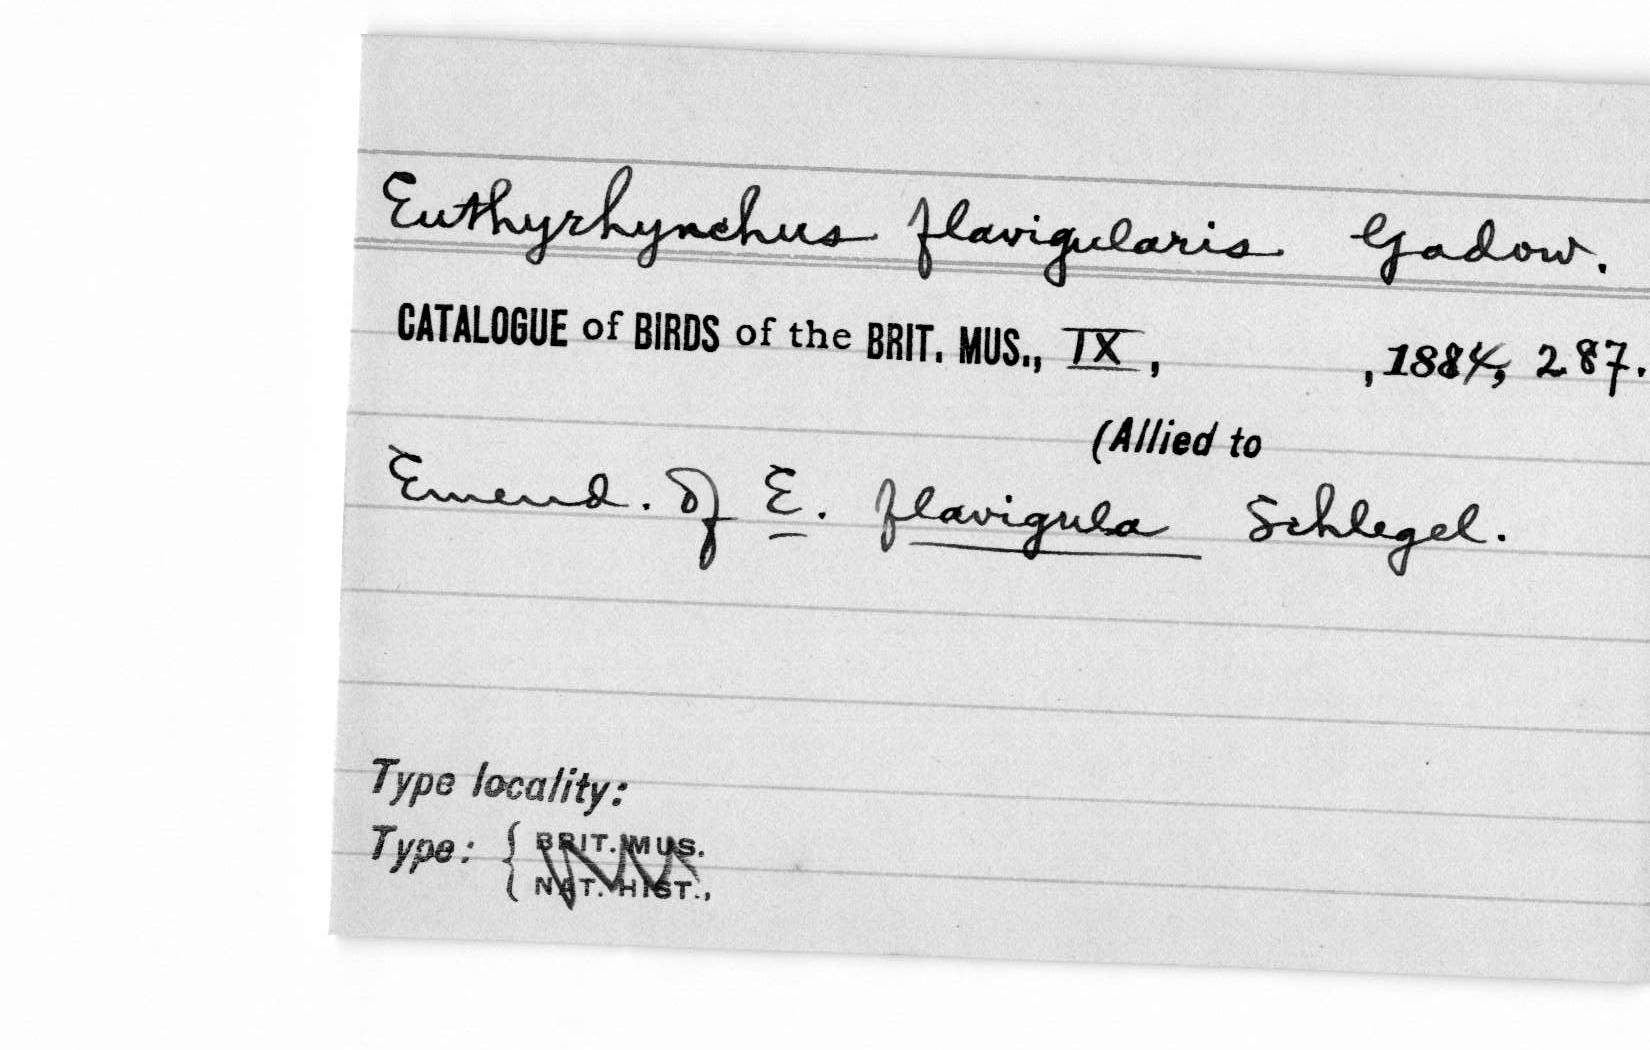 Euthyrhynchus flavigularis Gadow.
CATALOGUE of BIRDS of the BRIT. MUS., IX, , 1884, 287.
(Allied to
Emend. of E. flavigula Schlegel.
Type locality:
Type: { BRIT. MUS.
NAT. HIST.,